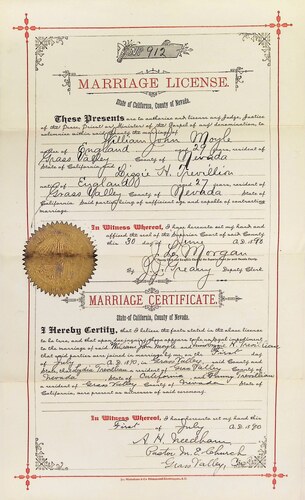 No 912
MARRIAGE LICENSE
State of California, County of Nevada.
These Presents are to authorize and license any Judge, Justice
of the Peace, Priest or Minister of the Gospel of any denomination, to
solemnize within said County the marriage of
William John Moyle
native of England aged 29 years, resident of
Grass Valley County of Nevada
State of California and Lizzie H. Trevillion
native of England aged 27 years, resident of
Grass Valley County of Nevada State of
California. Said parties being of sufficient age and capable of contracting
marriage.
In Witness Whereof, I have hereunto set my hand and
affixed the seal of the Superior Court of said County
this 30 day of June A.D. 1890
Morgan
By J. J. Greany Deputy Clerk
MARRIAGE CERTIFICATE
State of California, County of Nevada.
I Hereby Certify, that I believe the facts stated in the above license
to be true, and that upon due inquiry there appears to be no legal impediment
to the marriage of said William John Moyle and Lizzie H. Trevillion
that said parties were joined in marriage by me on the First day
of July A.D. 1890, in Grass Valley County of
Trevillion a resident of Grass Valley County of
Nevada State of California and Trevillion
a resident of Grass Valley County of Nevada State of
California, are present as witnesses of said ceremony.
In Witness Whereof, I have hereunto set my hand this
First day of July A.D. 1890
A. H. Needham
Pastor M. E. Church
Grass Valley, Cal